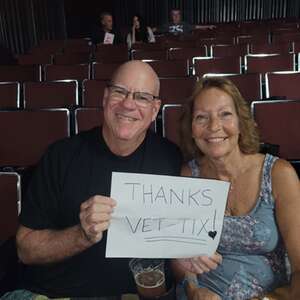 THANKS
VET-TIX!